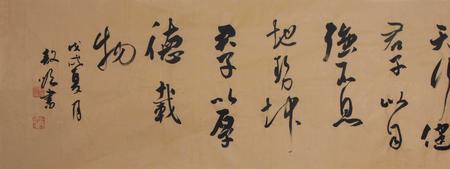 天行健
君子以自
強不息
地勢坤
君子以厚
德載
物
戊戌夏月
書